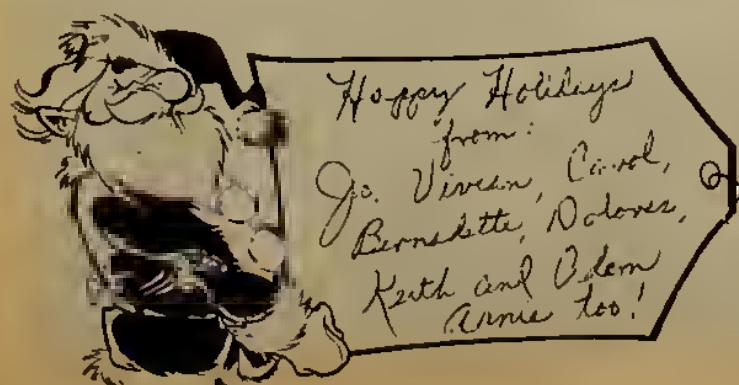 Happy Holidays
from:
Jo, Vivian, Carol,
Bernadette, Dolores,
Keith and Odem
Arnie too!